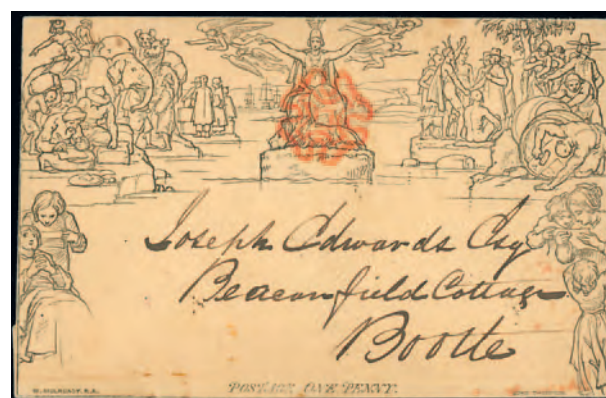 Joseph Edwards Esq
Beaconfield Cottage
Bootle
W. MULREADY. R.A.
POSTAGE ONE PENNY.